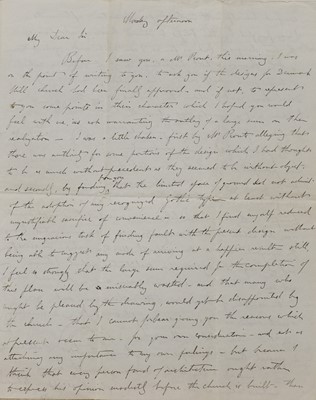 Monday afternoon
My Dear Sir
Before I saw you & Mr Prout this morning, I was
on the point of writing to you, to ask you if the designs for Denmark
Hill church had been finally approved and if not, to represent
to you some points in their character which I hoped you would
feel with me as not warranting the outlay of a large sum on their
realization — I was a little shaken, first by Mr Prout alleging that
there was authority for some portions of the design which I had thought
to be as much without precedent as they seemed to be without object;
and secondly, by finding from you that the limited space of ground did not admit
of the adoption of any recognized Gothic type, at least without
unjustifiable sacrifice of convenience — so that I found myself reduced
to the ungracious task of finding fault with the present design without
being able to suggest any mode of arriving at a happier result. Still
I feel so strongly that the large sum required for the completion of
this plan will be miserably wasted — and that many who
might be pleased by the drawing would yet be disappointed by
the church — that I cannot help giving you the reasons which
at present occur to me — for your own consideration — and not as
attaching any importance to my own feelings — but because I
think that every person fond of architecture ought rather
to express his opinion modestly before the church is built — than